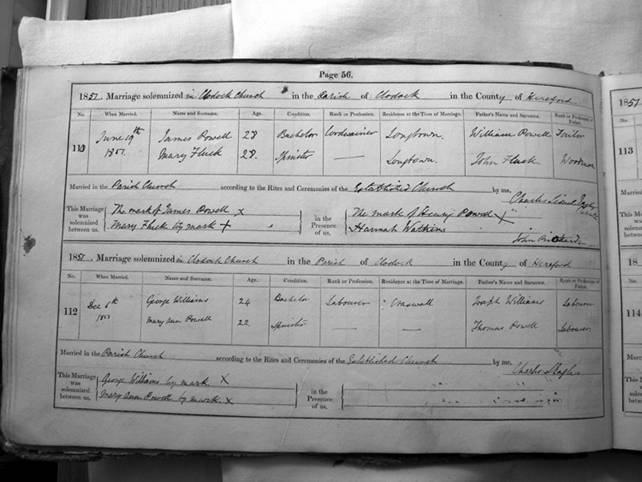 Page 56.
1851. Marriage solemnized in Clodock Church in the Parish of Clodock in the County of Hereford
No. When Married. Name and Surname. Age. Condition. Rank or Profession. Residence at the Time of Marriage. Father's Name and Surname. Rank or Profession of Father.
June 19th James Powell 28 Bachelor Cordwainer Longtown William Powell
1851. Mary Fluck 28. Spinster — Longtown. John Fluck Woodman
Married in the Parish Church according to the Rites and Ceremonies of the Established Church by me,
This Marriage was solemnized between us, The mark of James Powell X in the Presence of us, The mark of Henry Powell X
Mary Fluck by mark + Hannah Watkins
1851. Marriage solemnized in Clodock Church in the Parish of Clodock in the County of Hereford
No. When Married. Name and Surname. Age. Condition. Rank or Profession. Residence at the Time of Marriage. Father's Name and Surname. Rank or Profession of Father.
112 Dec 6th George Williams 24 Bachelor Labourer Craswall Joseph Williams Labourer
Mary Ann Powell 22 Spinster — Thomas Powell Labourer
Married in the Parish Church according to the Rites and Ceremonies of the Established Church by me,
This Marriage was solemnized between us, George Williams by mark X in the Presence of us,
Mary Ann Powell by mark X
185
No.
113
185
No.
114